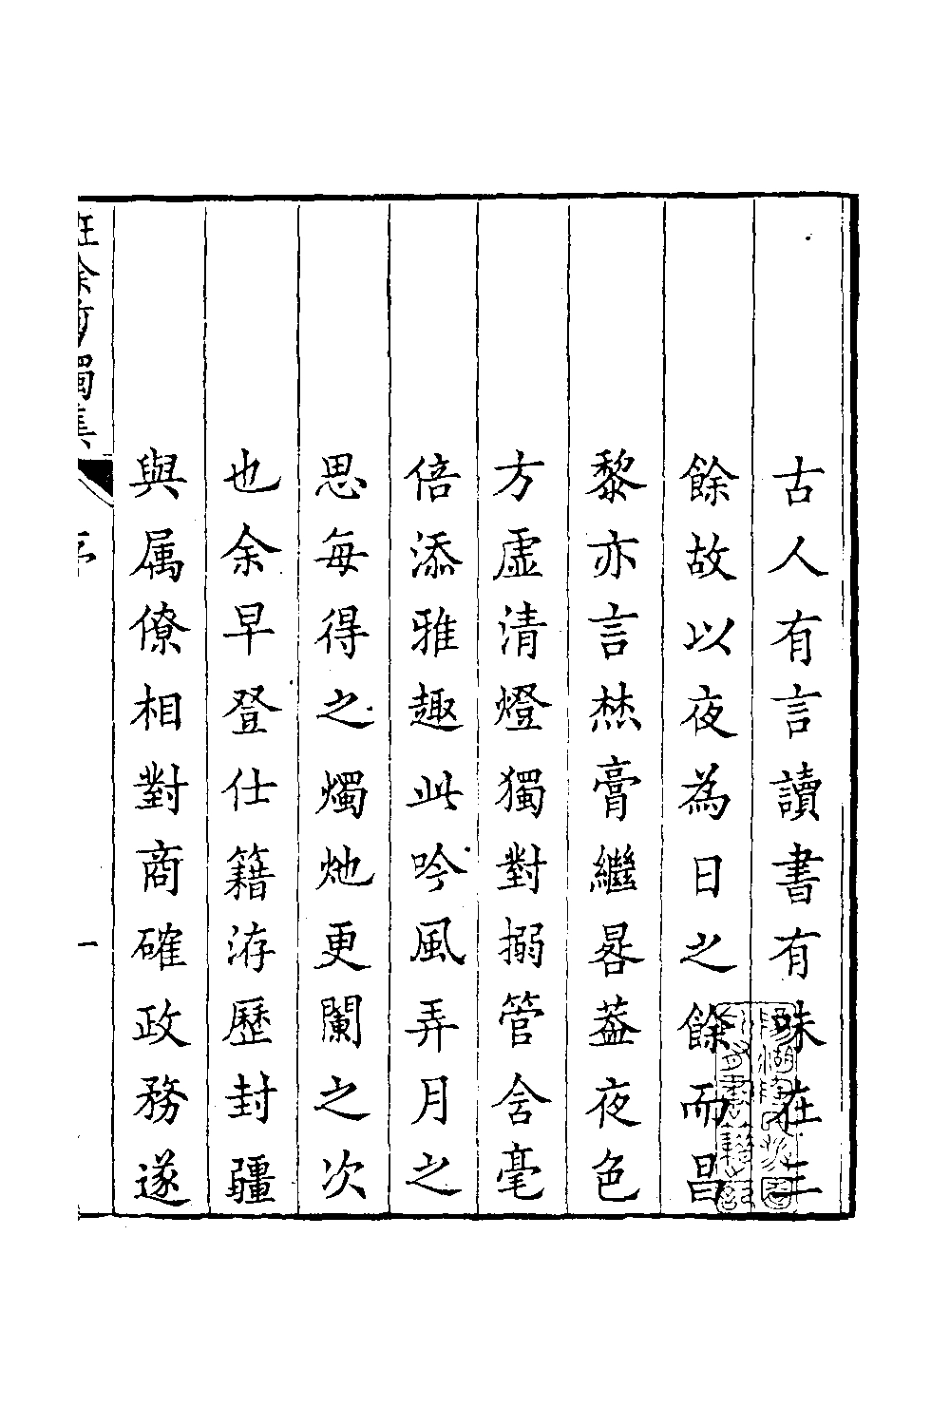 古人有言讀書有味在三
餘故以夜為日之餘而昌
黎亦言焚膏繼晷葢夜色
方虛清燈獨對搦管含毫
倍添雅趣此吟風弄月之
思每得之燭灺更闌之次
也余早登仕籍洊歷封疆
與属僚相對商確政務遂
序
一